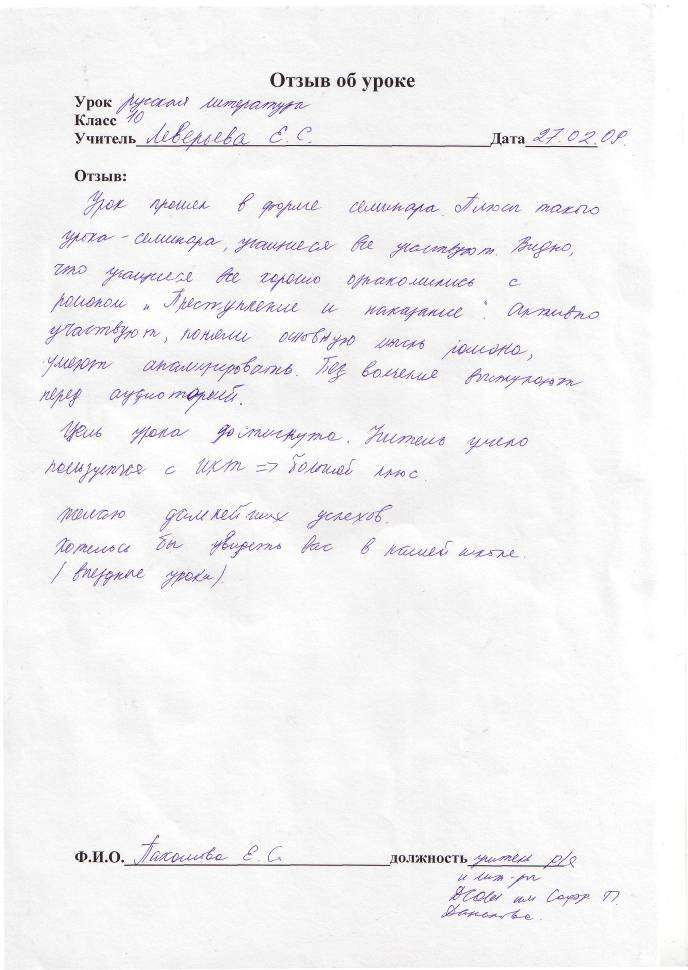 Отзыв об уроке
Урок русская литература
Класс 10
Учитель Леверьева Е. С. Дата 27.02.09.
Отзыв:
Урок прошел в форме семинара. Плюсы такого
урока-семинара, учащиеся все участвуют. Видно,
что учащиеся все хорошо ознакомились с
романом „Преступление и наказание". Активно
участвуют, поняли основную мысль романа,
умеют анализировать. Без волнение выступают
перед аудиторией.
Цель урока достигнута. Учитель умело
пользуется с ИКТ => большой плюс.
Желаю дальнейших успехов.
Хотелось бы увидеть вас в нашей школе.
(выездные урока).
Ф.И.О. Е. С. должность учитель р/я
и лит-ры
им Софр. П.
Данилова.